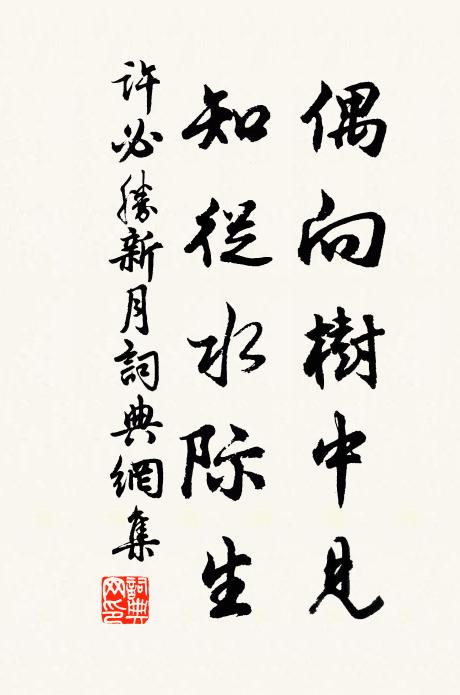 偶向樹中見
知從水际生
許必勝新月詞典網集
詞典網印